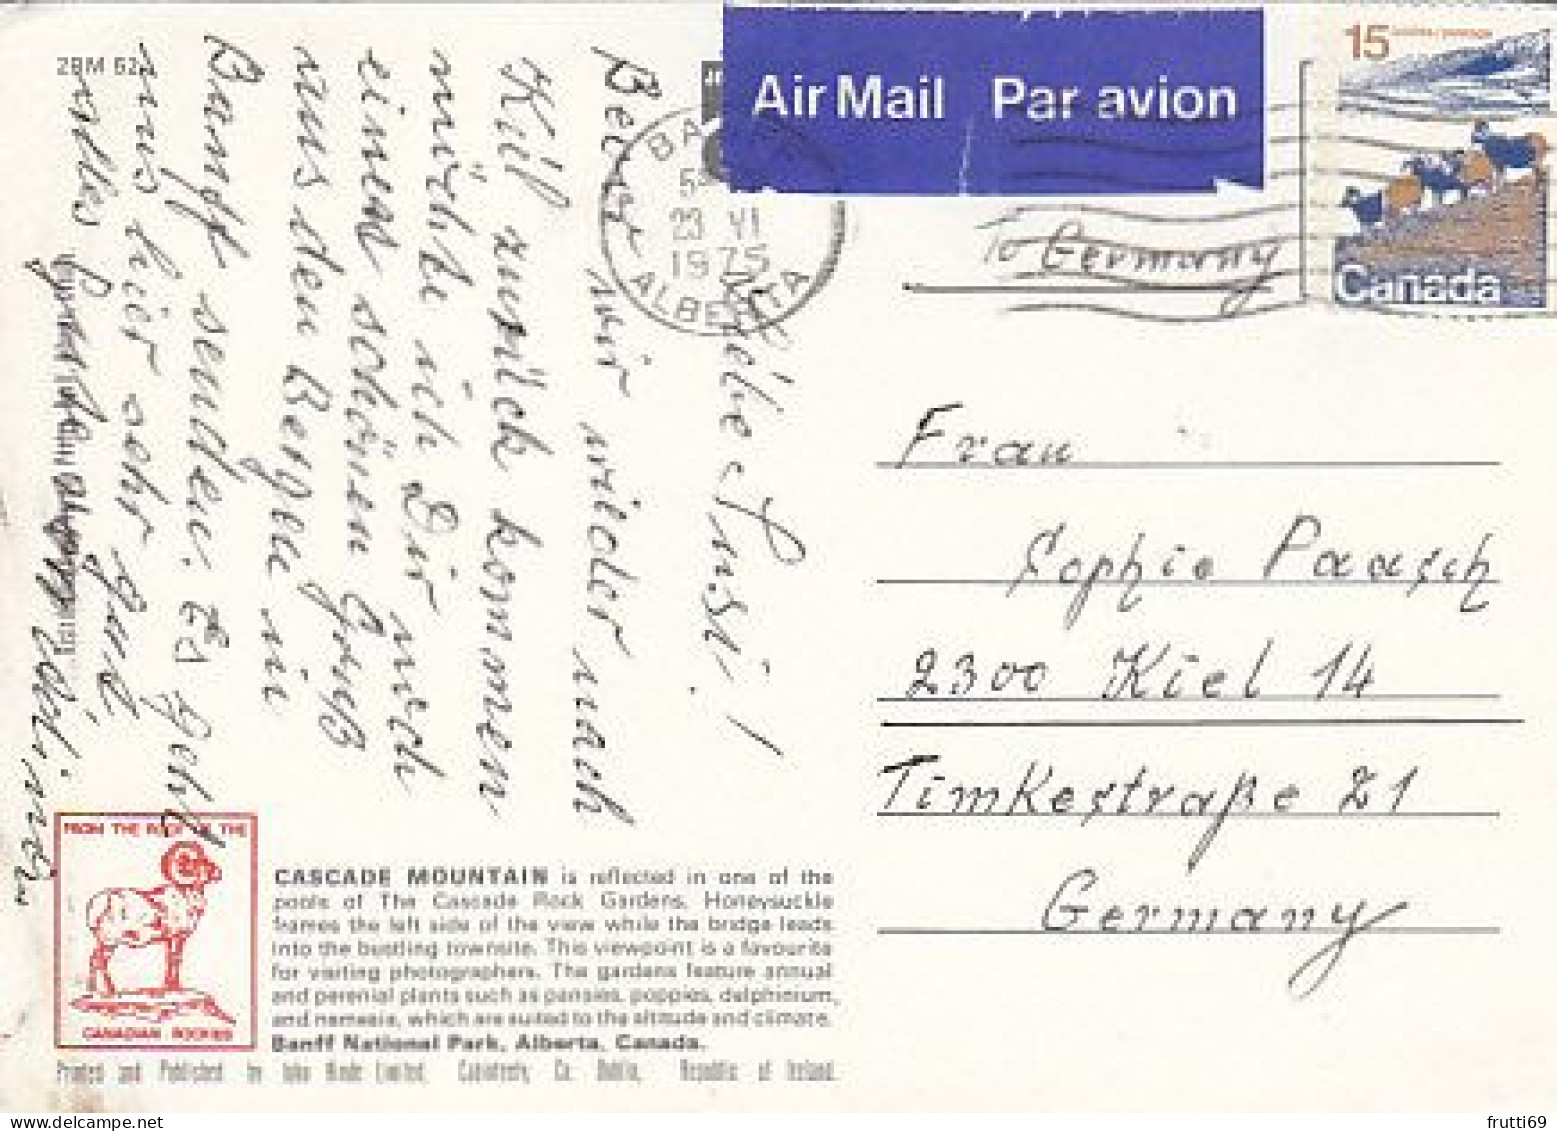 2BM 52
Air Mail Par avion
15
Canada
BA
23 VI
1975
ALBERTA
To Germany
Liebe Susi!
Bevor wir wieder nach
Kiel zurück kommen
möchte ich Dir noch
einen schönen Gruß
aus den Bergen in
Banff senden. Es geht
uns hier sehr gut
Frau
Sophie Paasch
2300 Kiel 14
Timkestraße 21
Germany
FROM THE ROOF OF THE
CANADIAN ROCKIES
CASCADE MOUNTAIN is reflected in one of the
pools of The Cascade Rock Gardens. Honeysuckle
frames the left side of the view while the bridge leads
into the bustling townsite. This viewpoint is a favourite
for visiting photographers. The gardens feature annual
and perenial plants such as pansies, poppies, delphinium,
and nemesia, which are suited to the altitude and climate.
Banff National Park, Alberta, Canada.
Printed and Published by John Hinde Limited, Cabinteely, Co. Dublin, Republic of Ireland.
frutti69